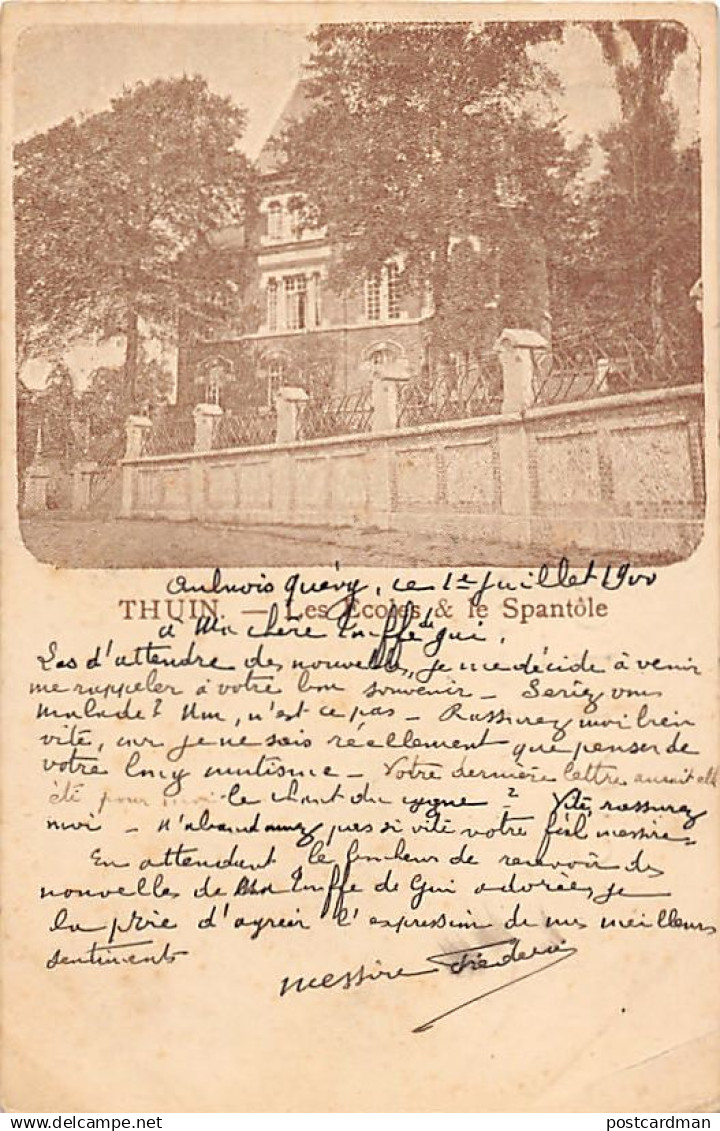 Aulnois Quévy, ce 1er Juillet 1900
THUIN. — Les Ecoles & le Spantôle
à Ma chère Touffe de gui,
Las d'attendre des nouvelles, je me décide à venir
me rappeler à votre bon souvenir — Seriez vous
malade? Non, n'est ce pas — Rassurez moi bien
vite, car je ne sais réellement que penser de
votre long mutisme — Votre dernière lettre aurait elle
été pour moi le chant du cygne? Vite, rassurez
moi — N'abandonnez pas si vite votre fidèle messire —
En attendant le bonheur de recevoir des
nouvelles de Ma Touffe de Gui adorée, je
la prie d'agréer l'expression de mes meilleurs
sentiments
messire Fréderic
postcardman